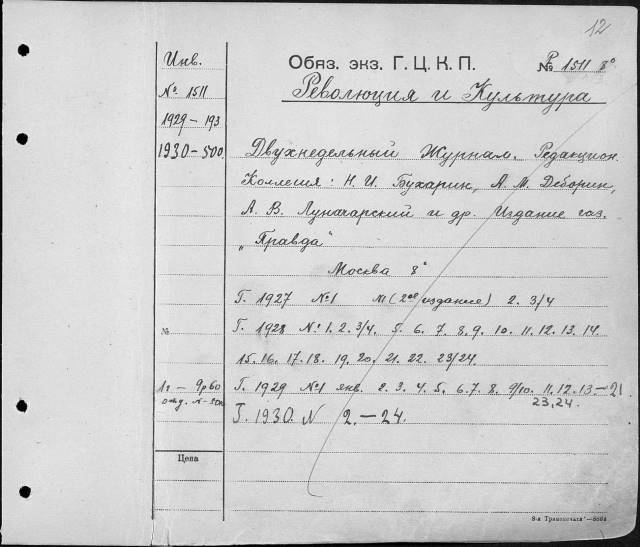 12
Инв.
№ 1511
1929 – 193
1930 – 500
Обяз. экз. Г. Ц. К. П.
№ Р 1511 8°
Революция и Культура
Двухнедельный Журнал. Редакцион.
Коллегия: Н. И. Бухарин, А. М. Деборин,
А. В. Луначарский и др. Издание газ.
„Правда"
Москва 8°
Г. 1927 №1 (2ое издание) 2. 3/4
№
Г. 1928 №1. 2. 3/4. 5. 6. 7. 8. 9. 10. 11. 12. 13. 14.
15. 16. 17. 18. 19. 20. 21. 22. 23/24.
Г. 1929 №1 янв. 2. 3. 4. 5. 6. 7. 8. 9/10. 11. 12. 13.–21
23, 24.
Г. 1930. N 2.–24.
Цена